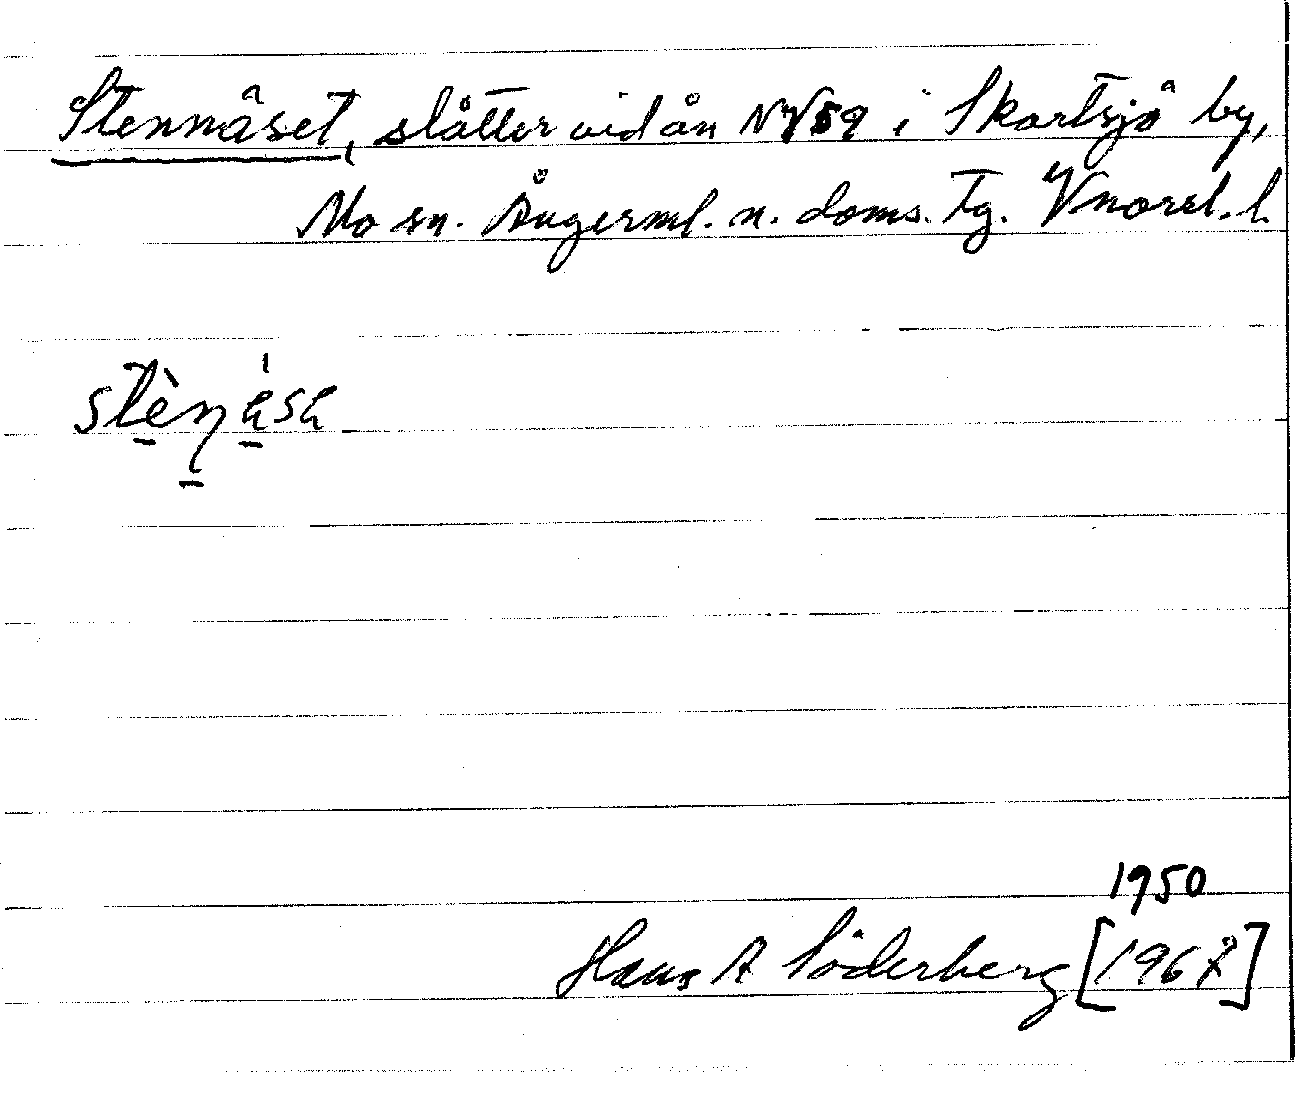 Stennäset, slåtter vid ån NV59 i Skortsjö by,
Mo sn. Ångerml. n. doms. Tg. Vnorrl. l.
stènǽsa
1950
Hans A Söderberg [1968]